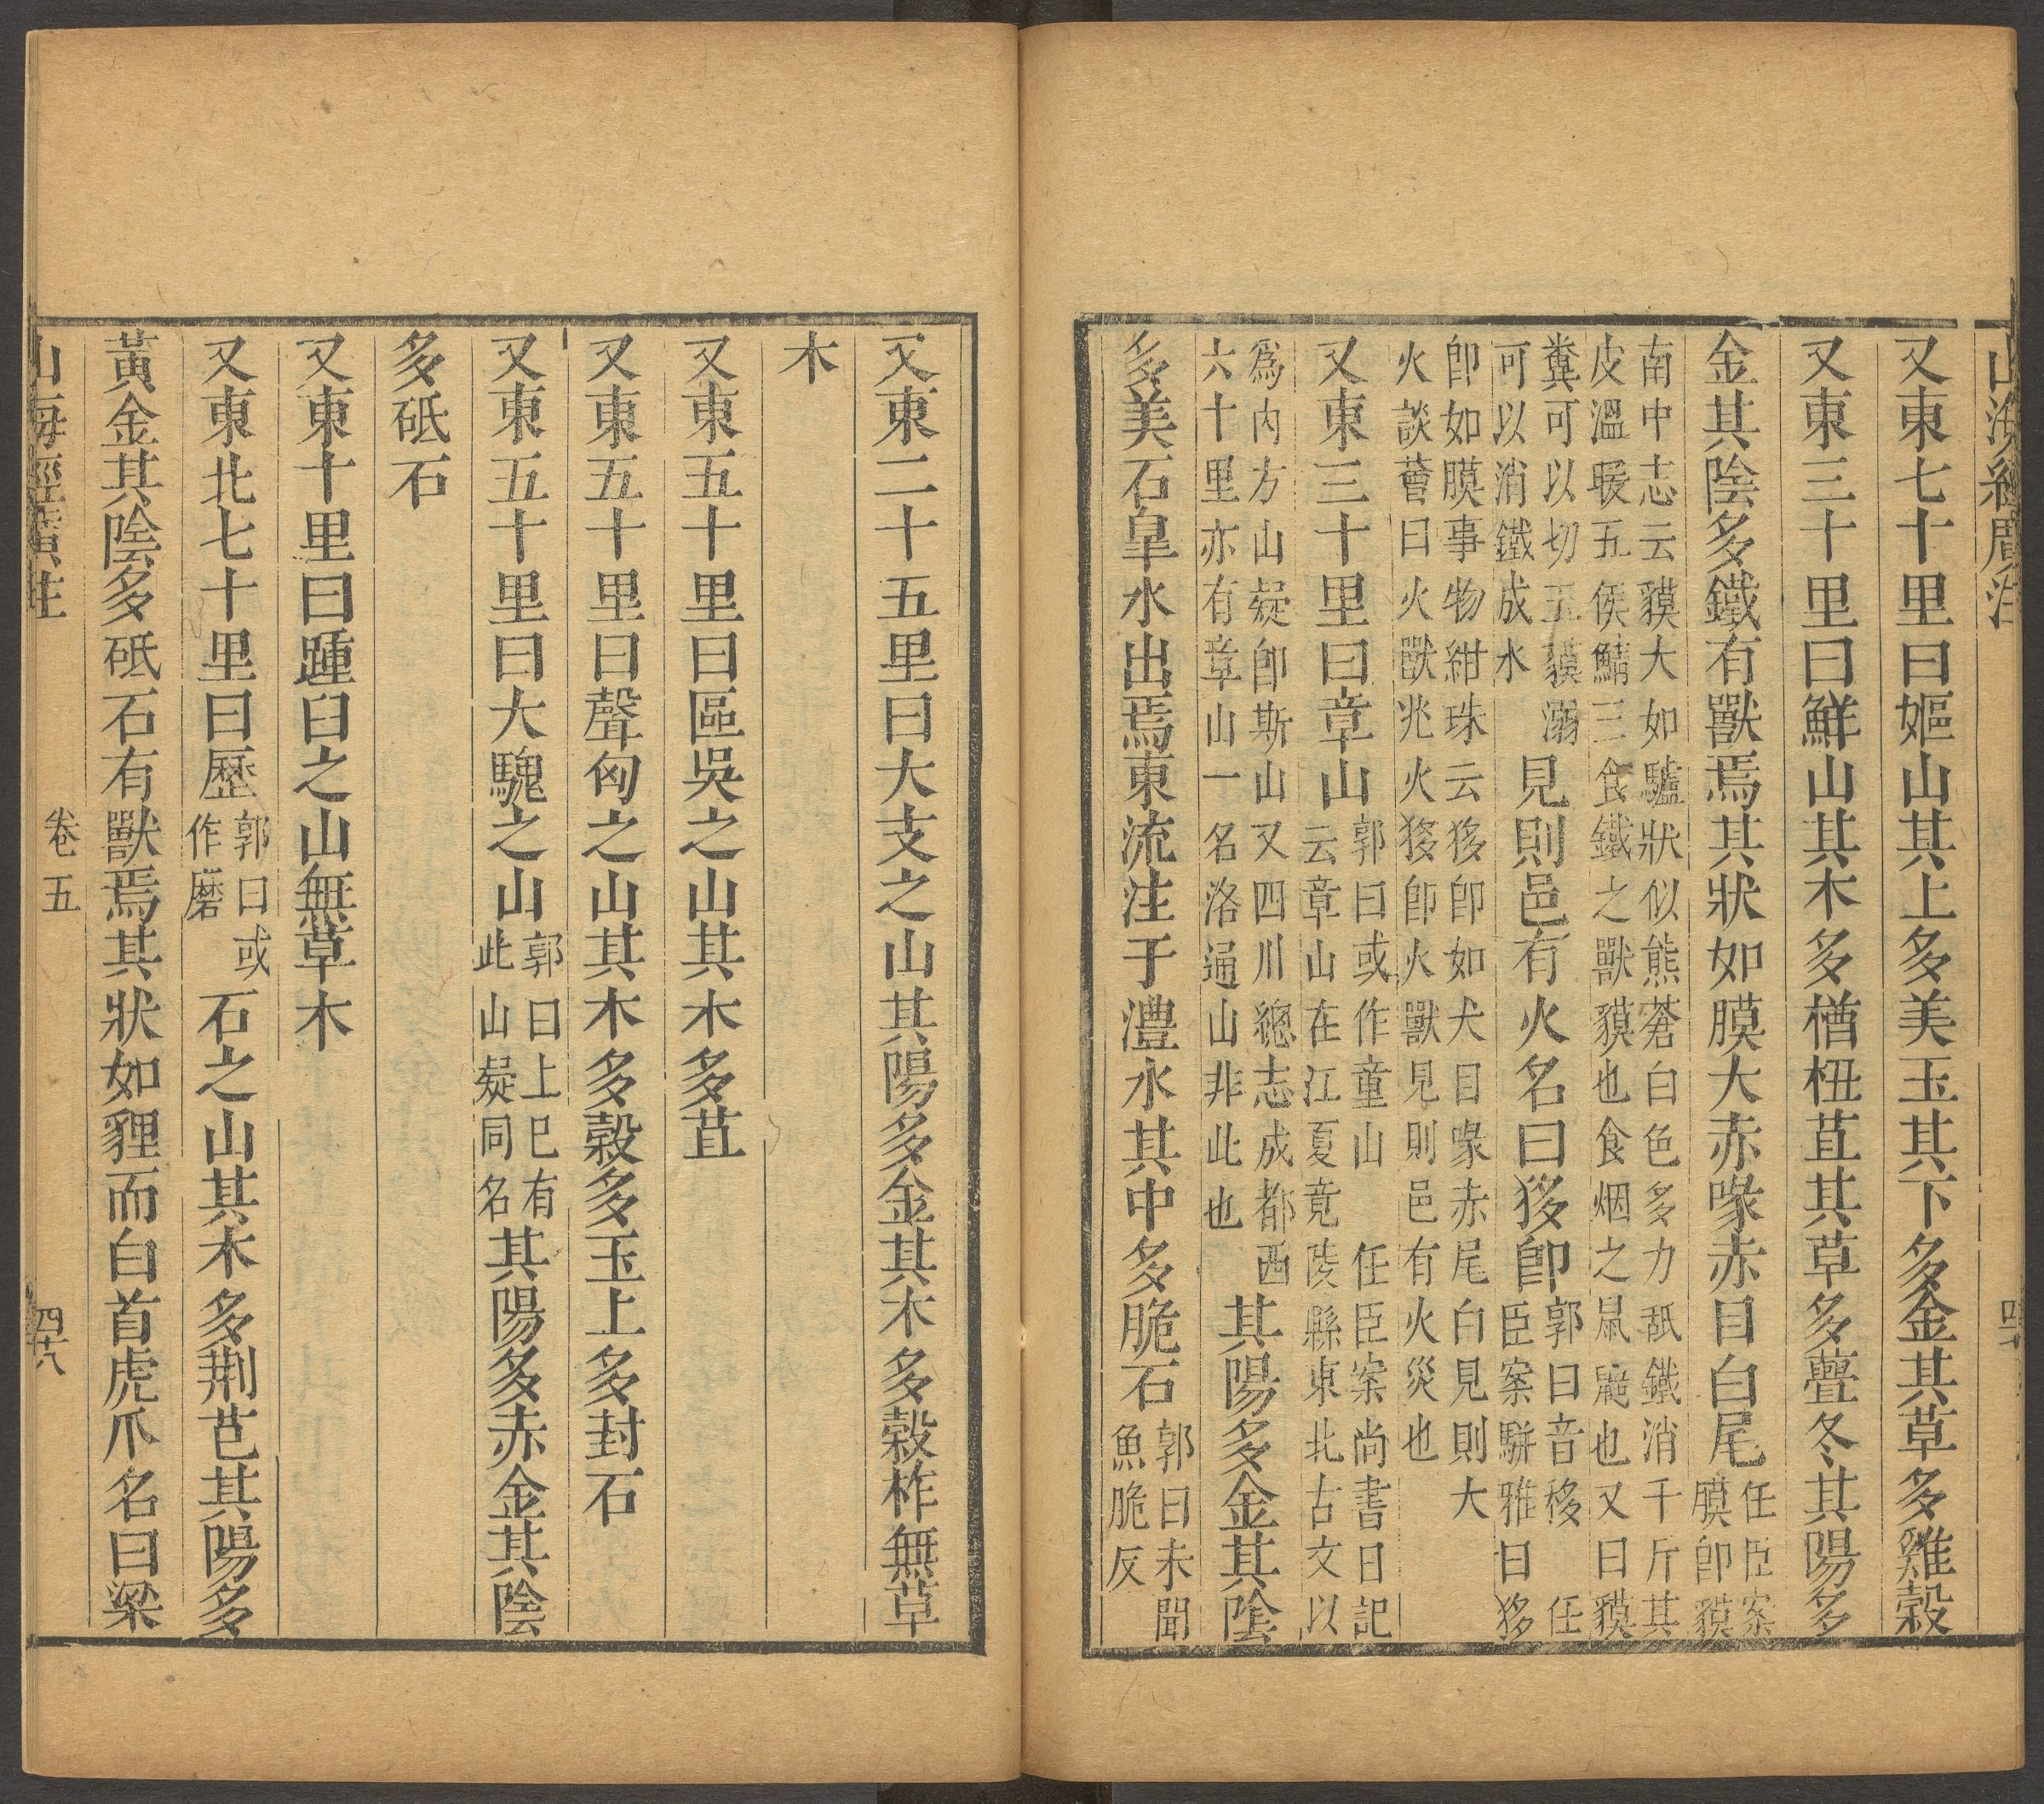 山海經廣注
又東七十里曰嫗山其上多美玉其下多金其草多雞穀
又東三十里曰鮮山其木多楢杻苴其草多虋冬其陽多
金其陰多鐵有獸焉其狀如膜大赤喙赤目白尾任臣案膜即貘
南中志云貘大如驢狀似熊蒼白色多力舐鐵消千斤其
皮溫暖五侯鯖三食鐵之獸貘也食烟之鼠𪕭也又曰貘
糞可以切玉貘溺
可以消鐵成水見則邑有火名曰㺄即郭曰音移 任臣案駢雅曰㺄
即如膜事物紺珠云㺄即如犬目喙赤尾白見則大
火談薈曰火獸兆火㺄即火獸見則邑有火災也
又東三十里曰章山郭曰或作童山 任臣案尚書日記云章山在江夏竟陵縣東北古文以
爲內方山疑即斯山又四川總志成都西
六十里亦有章山一名洛通山非此也其陽多金其陰
多美石皐水出焉東流注于澧水其中多脆石郭曰未聞魚脆反
又東二十五里曰大支之山其陽多金其木多榖柞無草
木
又東五十里曰區吳之山其木多苴
又東五十里曰聲匈之山其木多榖多玉上多封石
又東五十里曰大騩之山郭曰上巳有此山疑同名其陽多赤金其陰
多砥石
又東十里曰踵臼之山無草木
又東北七十里曰歷郭曰或作磨石之山其木多荆芑其陽多
黃金其陰多砥石有獸焉其狀如貍而白首虎爪名曰梁
山海經廣注
卷五
四十八